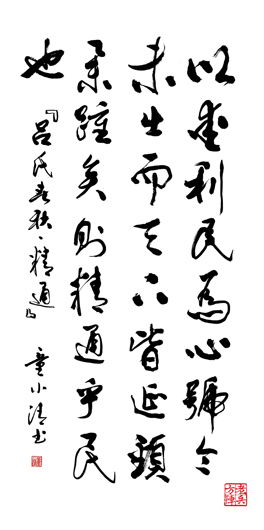 以愛利民為心號令
未出而天下皆延頸
舉踵矣則精通乎民
也
『呂氏春秋·精通』
童小清书